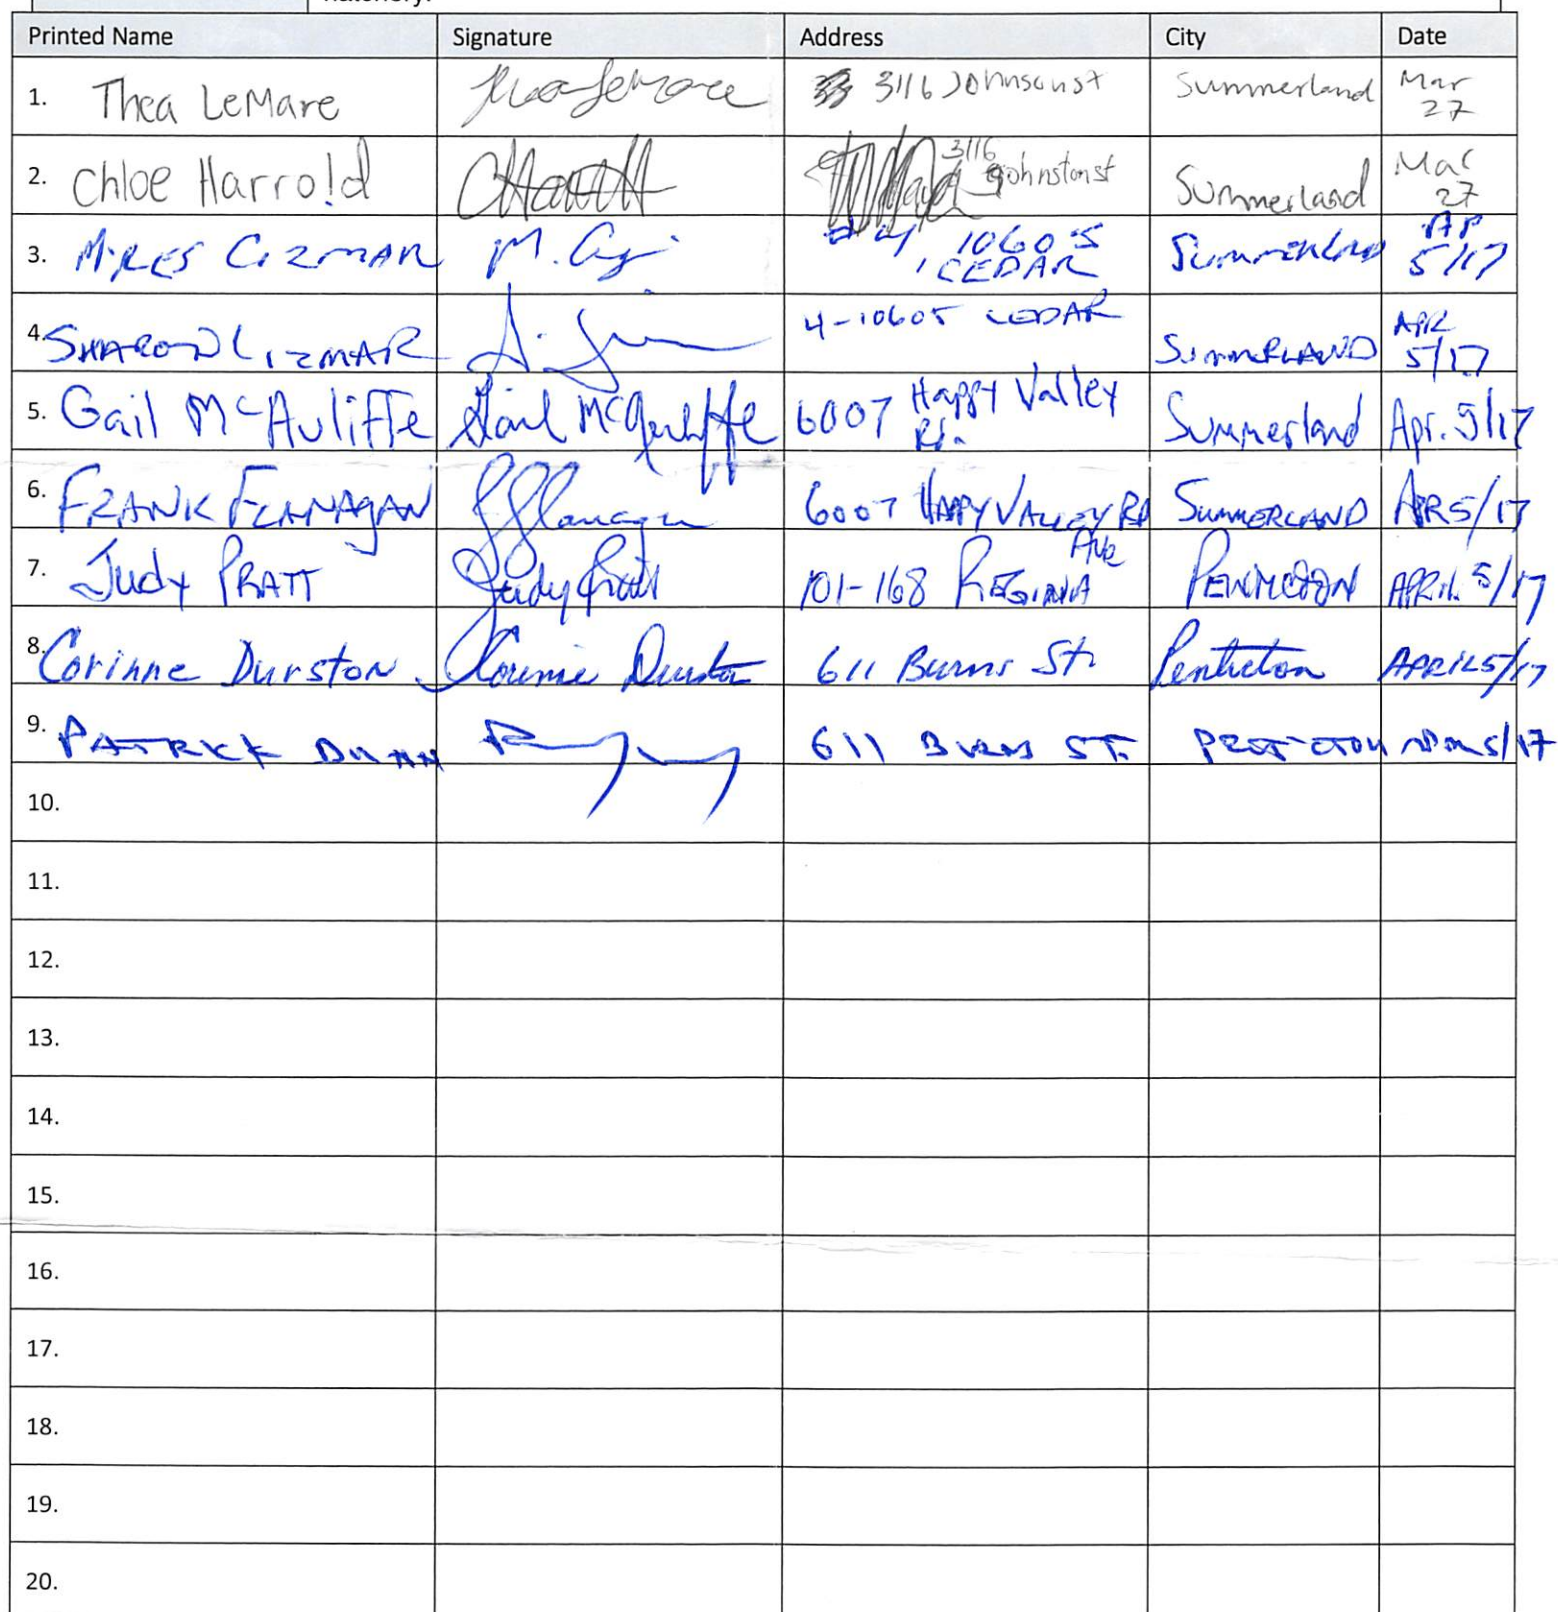 Printed Name Signature Address City Date
1. Thea LeMare Thea LeMare 3116 Johnson st Summerland Mar 27
2. Chloe Harrold 3116 Johnston st Summerland Mar 27
3. CIZMAR M. #4 10605 CEDAR Summerland AP 5/17
4. SHARON CIZMAR 4-10605 CEDAR SUMMERLAND APR 5/17
5. Gail McAuliffe Gail McAuliffe 6007 Happy Valley Rd. Summerland Apr. 5/17
6. FRANK FLANAGAN Flanagan 6007 HAPPY VALLEY RD SUMMERLAND APR 5/17
7. Judy PRATT Judy Pratt 101-168 REGINA Ave PENTICTON APRIL 5/17
8. Corinne Durston Corinne Durston 611 Burns St. Penticton APRIL 5/17
9. PATRICK 611 BURNS ST. 5/17
10.
11.
12.
13.
14.
15.
16.
17.
18.
19.
20.